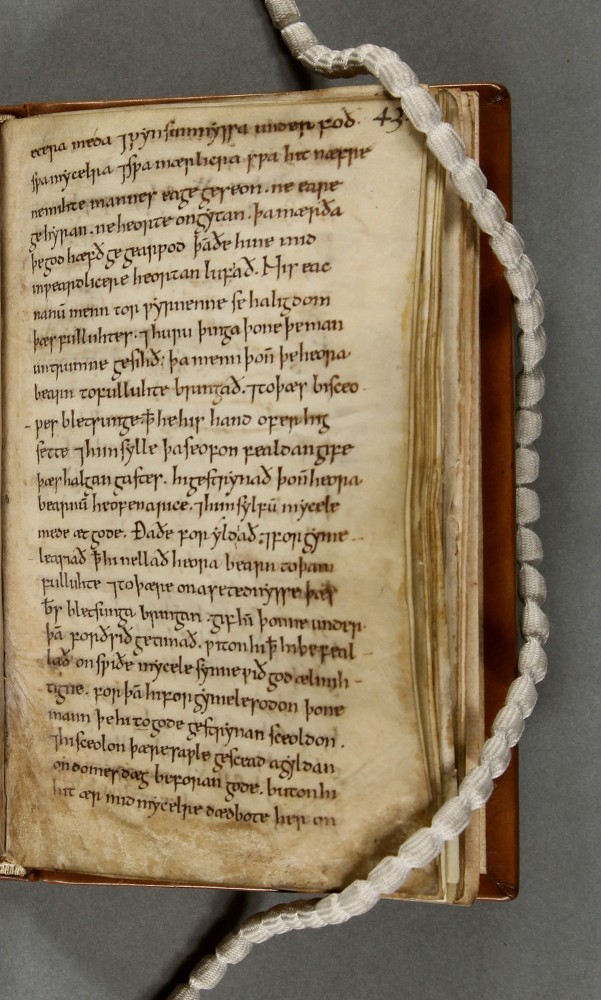 43
ecera meda ⁊ ƿynsumnyssa under god
swa mycelra ⁊ swa mærlicra swa hit næfre
nemihte mannes eage geseon. ne eare
gehyran. ne heorte ongytan. þa mærða
þe god hæfð gegearwod þā ðe hine mid
inweardlicere heortan lufað. Nis eac
nanū menn to forwyrnenne se haligdom
þæs fulluhtes. ⁊ huru þinga þone þe man
untrumne gesihð: þa menn þoñ þe heora
bearn to fulluhte bringað. ⁊ to þæs bisceo
pes bletsunge. ꝥ he his hand ofer hig
sette ⁊ him sylle þa seofon fealdan gife
þæs halgan gastes. hi gestrynað þoñ heora
bearnū heofena rice. ⁊ him sylfū mycele
mede æt gode. Ða ðe for yldað. ⁊ forgyme
leasiað ꝥ hi nellað heora bearn to þam
fulluhte ⁊ to þære onasetednysse þæs
bletsunga bringan. gif hī þonne under
þā forðsið getimað. witon hi ꝥ hi befeal
lað on swiðe mycele synne wið god ælmih
tigne. for þā hi forgymelesodon þone
mann þe hi to gode gestrynan sceoldon.
⁊ hi sceolon þære saple gescead agyldan
on domes dæg beforan gode. buton hi
hit ær mid mycelre dædbote her on